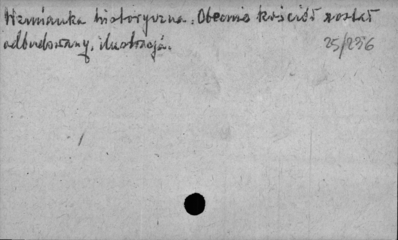 Wzmianka historyczna. Obecnie kościół został
odbudowany, ilustracja.
25/256